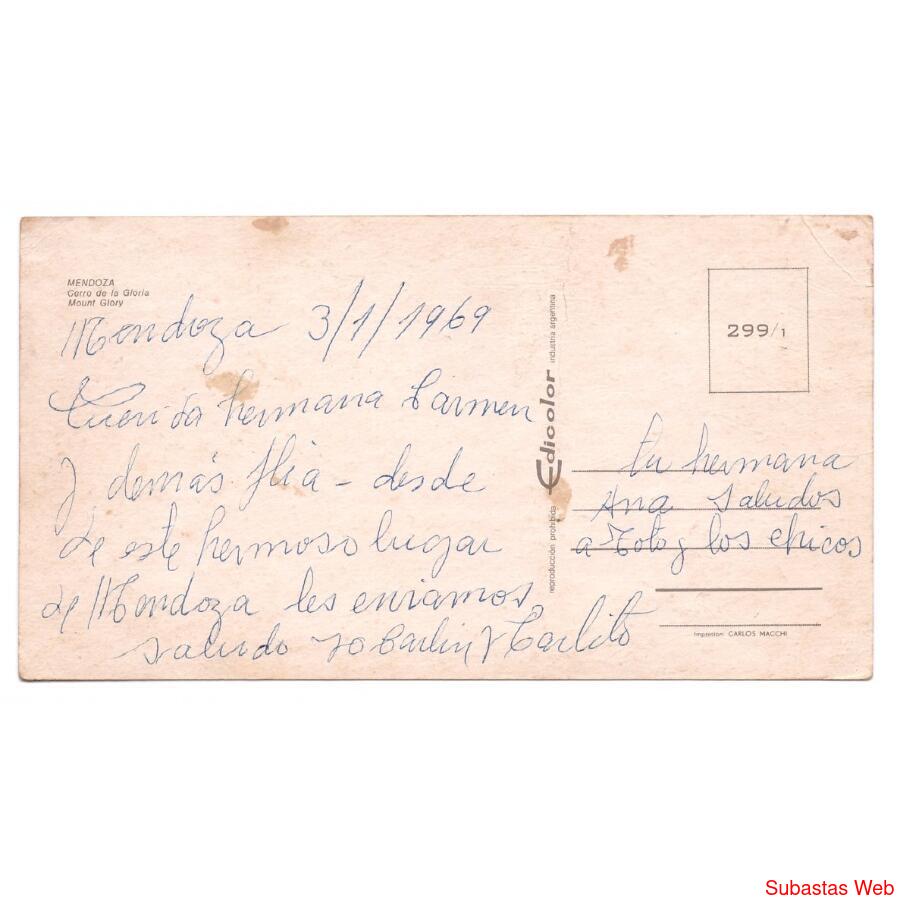 MENDOZA
Cerro de la Gloria
Mount Glory
Mendoza 3/1/1969
Querida hermana Carmen
y demás flia - desde
de este hermoso lugar
de Mendoza les enviamos
saludo yo Carlin y Carlito
reproducción prohibida Edicolor industria argentina
299/1
tu hermana
Ana saludos
a Toto y los chicos
Impresion: CARLOS MACCHI
Subastas Web